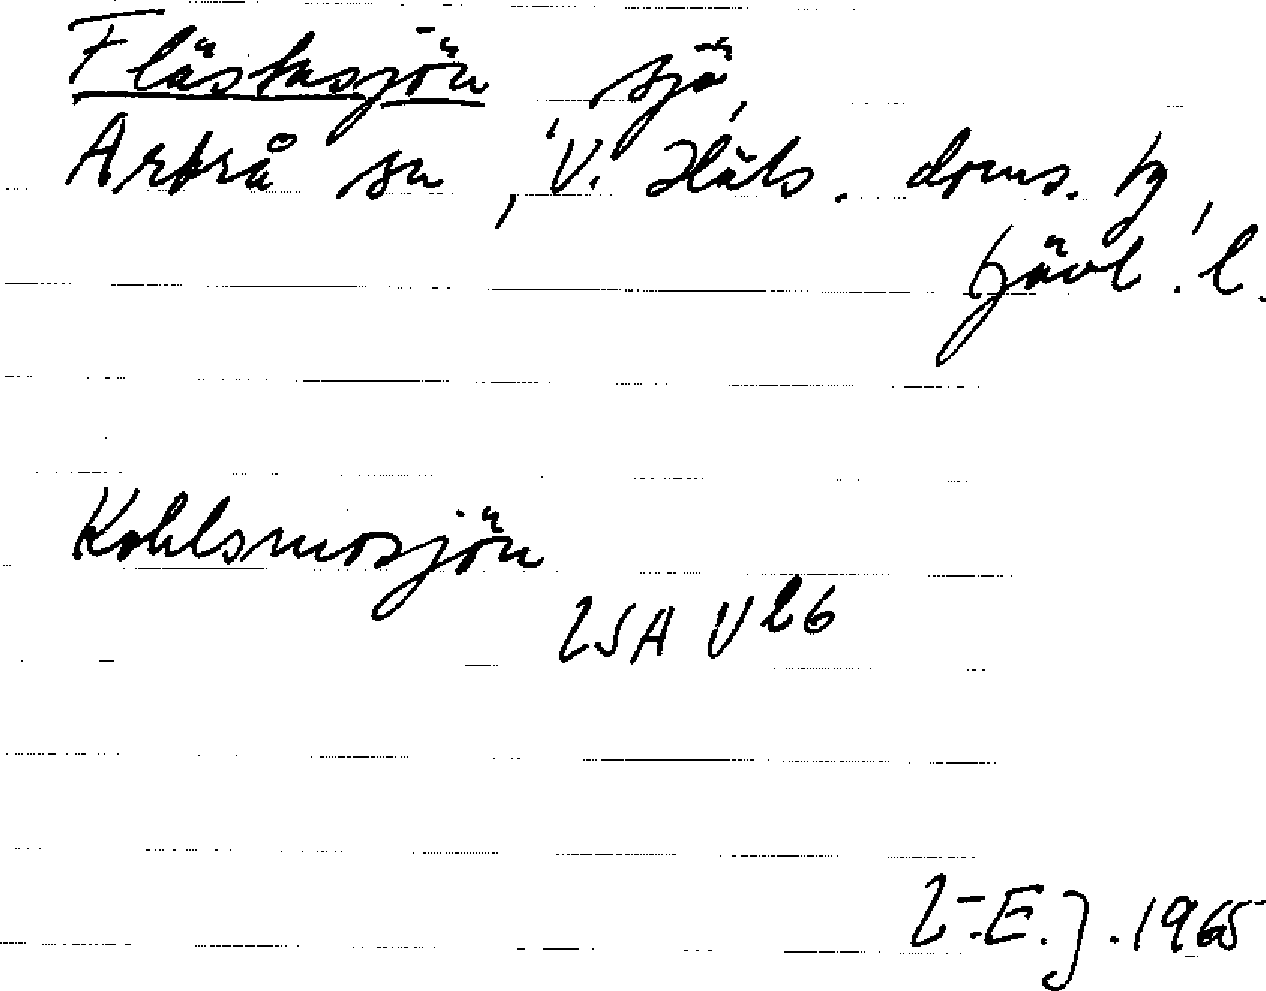 Flästasjön, sjö
Arbrå sn, V. Häls. doms.
Gävl. l.
Kohlsmosjön
LSA V26
L-E. J. 1965